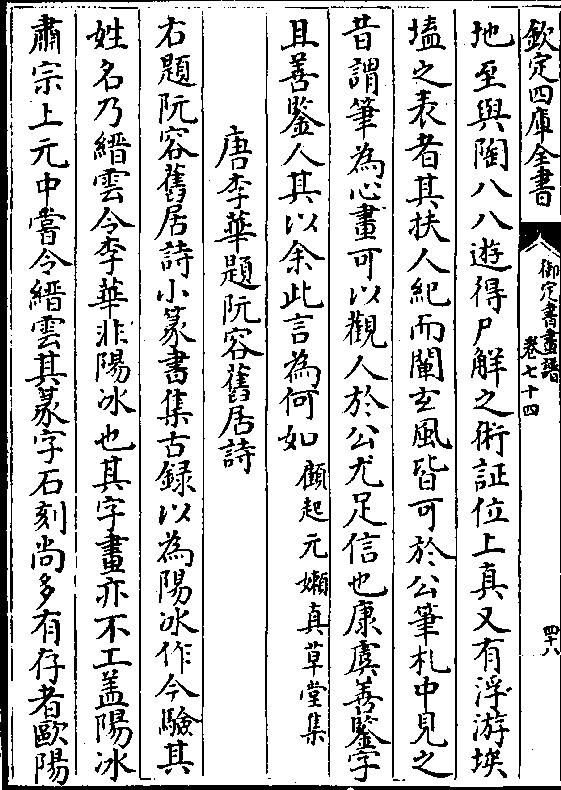 欽定四庫全書
御定書畫譜
卷七十四
四十八
地至與陶八八遊得尸解之術証位上真又有浮游埃
壒之表者其扶人紀而闡玄風皆可於公筆札中見之
昔謂筆為心畫可以觀人於公尤足信也康虞善鑒字
且善鑒人其以余此言為何如 顧起元嬾真草堂集
唐李華題阮容舊居詩
右題阮容舊居詩小篆書集古録以為陽冰作今驗其
姓名乃縉雲令李華非陽冰也其字畫亦不工盖陽冰
肅宗上元中嘗令縉雲其篆字石刻尚多有存者歐陽